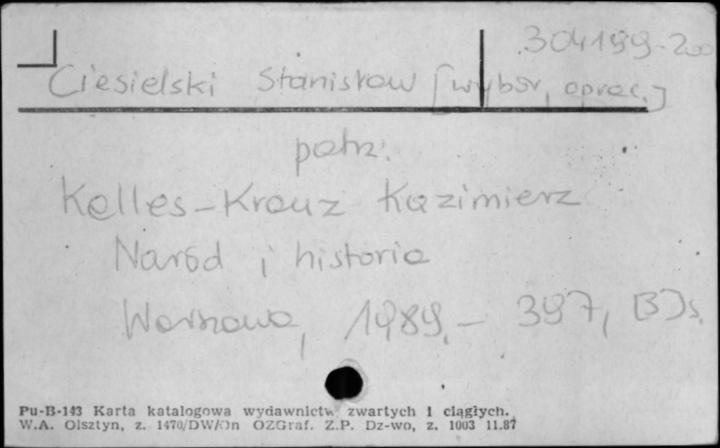 304199-200
Ciesielski Stanisław [wybór, oprac.]
patrz:
Kelles-Krauz Kazimierz
Naród i historia
Warszawa, 1989.- 397, [3]s.
Pu-B-143 Karta katalogowa wydawnictw zwartych i ciągłych.
W.A. Olsztyn, z. 1470/DW/On OZGraf. Z.P. Dz-wo, z. 1003 11.87